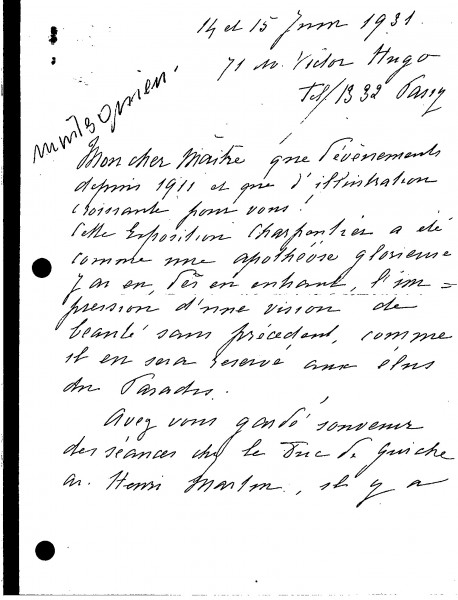 14 et 15 Juin 1931.
71 av. Victor Hugo
Tel/1332 Passy
Mon cher Maître que d'évènements
depuis 1911 et que d'illustration
croissante pour vous!
Cette Exposition Charpentier a été
comme une apothéose glorieuse
J'ai eu, dès en entrant, l'im=
pression d'une vision de
beauté sans précédent, comme
il en sera réservé aux élus
du Paradis.
Avez vous gardé souvenir
des séances chez le Duc de Guiche
av. Henri Martin, il y a